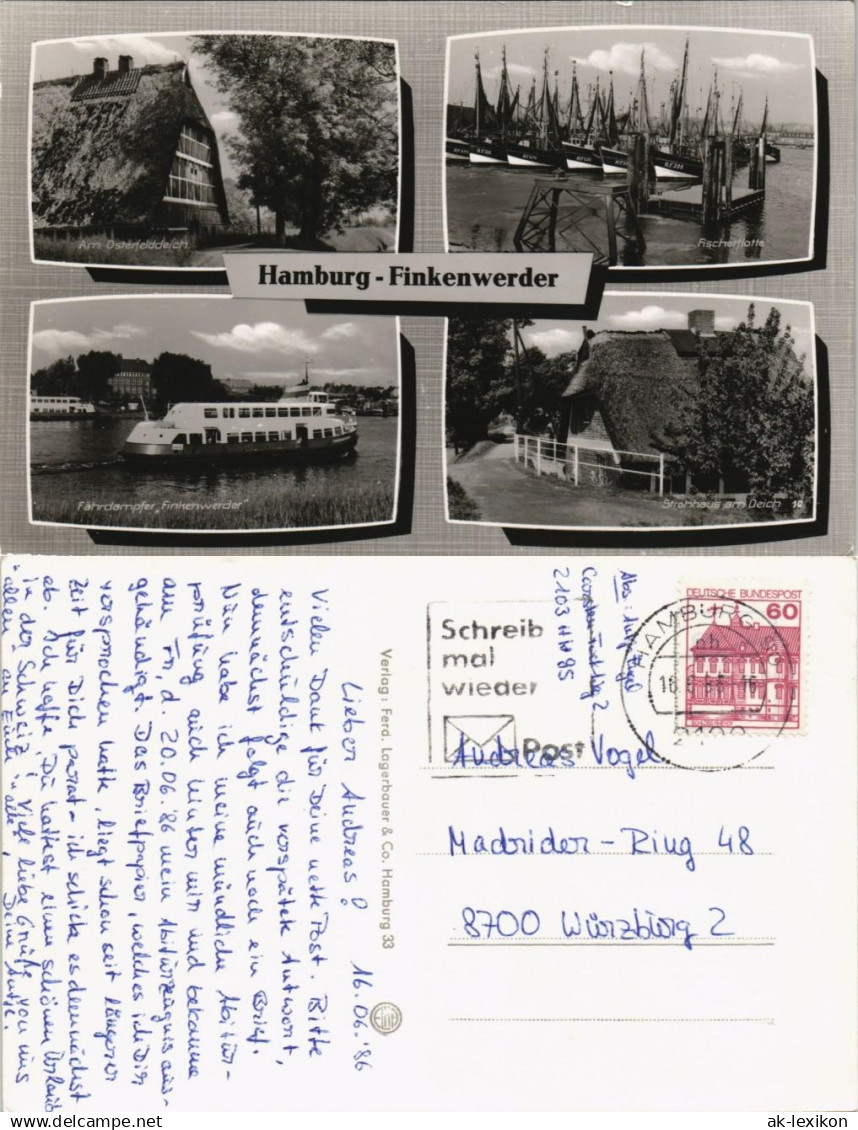 Am Osterfelddeich
Fischerflotte
Hamburg - Finkenwerder
Fährdampfer „Finkenwerder"
Strohhaus am Deich 10
16.06.'86
Lieber Andreas!
Vielen Dank für Deine nette Post. Bitte
entschuldige die verspätete Antwort,
demnächst folgt auch noch ein Brief.
Nun habe ich meine mündliche Abitur-
prüfung auch hinter mir und bekomme
am Fr, d. 20.06.'86 mein Abiturzeugnis aus-
gehändigt. Das Briefpapier, welches ich Dir
versprochen hatte, liegt schon seit längerer
Zeit für Dich parat - ich schicke es demnächst
ab. Ich hoffe, Du hattest einen schönen Urlaub
in der Schweiz! Viele liebe Grüße von uns
allen an Euch alle, Deine Antje.
Verlag: Ferd. Lagerbauer & Co. Hamburg 33
Abs.: Antje
2103 HH 95
Schreib
mal
wieder
Post
DEUTSCHE BUNDESPOST
60
HAMBURG
Andreas Vogel
Madrider - Ring 48
8700 Würzburg 2
ak-lexikon